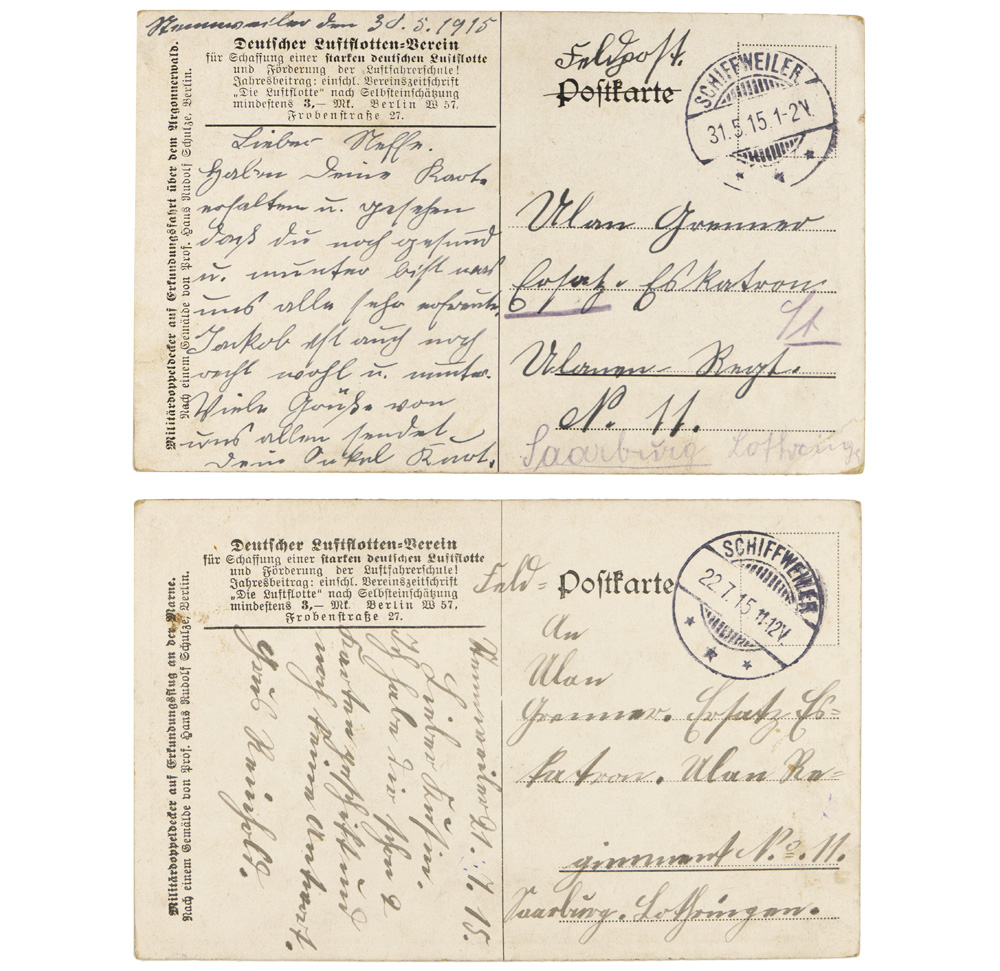 Stennweiler den 30.5.1915
Deutscher Luftflotten-Verein
für Schaffung einer starken deutschen Luftflotte
und Förderung der Luftfahrerschule!
Jahresbeitrag: einschl. Vereinszeitschrift
„Die Luftflotte" nach Selbsteinschätzung
mindestens 3,— Mk. Berlin W 57,
Frobenstraße 27.
Militärdoppeldecker auf Erkundungsfahrt über dem Argonnerwald.
Nach einem Gemälde von Prof. Hans Rudolf Schulze, Berlin.
Lieber Neffe.
Haben Deine Kart.
erhalten u. gesehen
daß du noch gesund
u. munter bist was
uns alle sehr erfreute.
Jakob ist auch noch
recht wohl u. munter.
Viele Grüße von
uns allen sendet
Dein Onkel
Feldpost.
Postkarte
SCHIFFWEILER
31.5.15.1-2V.
Ulan Grenner
Ersatz-Eskatron
Ulanen-Regt.
N. 11.
Saarburg Lothring.
Deutscher Luftflotten-Verein
für Schaffung einer starken deutschen Luftflotte
und Förderung der Luftfahrerschule!
Jahresbeitrag: einschl. Vereinszeitschrift
„Die Luftflotte" nach Selbsteinschätzung
mindestens 3,— Mk. Berlin W 57,
Frobenstraße 27.
Militärdoppeldecker auf Erkundungsflug an der Marne.
Nach einem Gemälde von Prof. Hans Rudolf Schulze, Berlin.
Stennweiler 21.7.15.
Lieber Kusin.
Ich habe dir schon 2
Karten geschikt und
noch keine Antwort.
Gruß Reinhold.
Feld= Postkarte
SCHIFFWEILER
22.7.15 11-12V.
An
Ulan
Grenner. Ersatz Es=
katron. Ulan Re=
giement No. 11.
Saarburg. Lothringen.